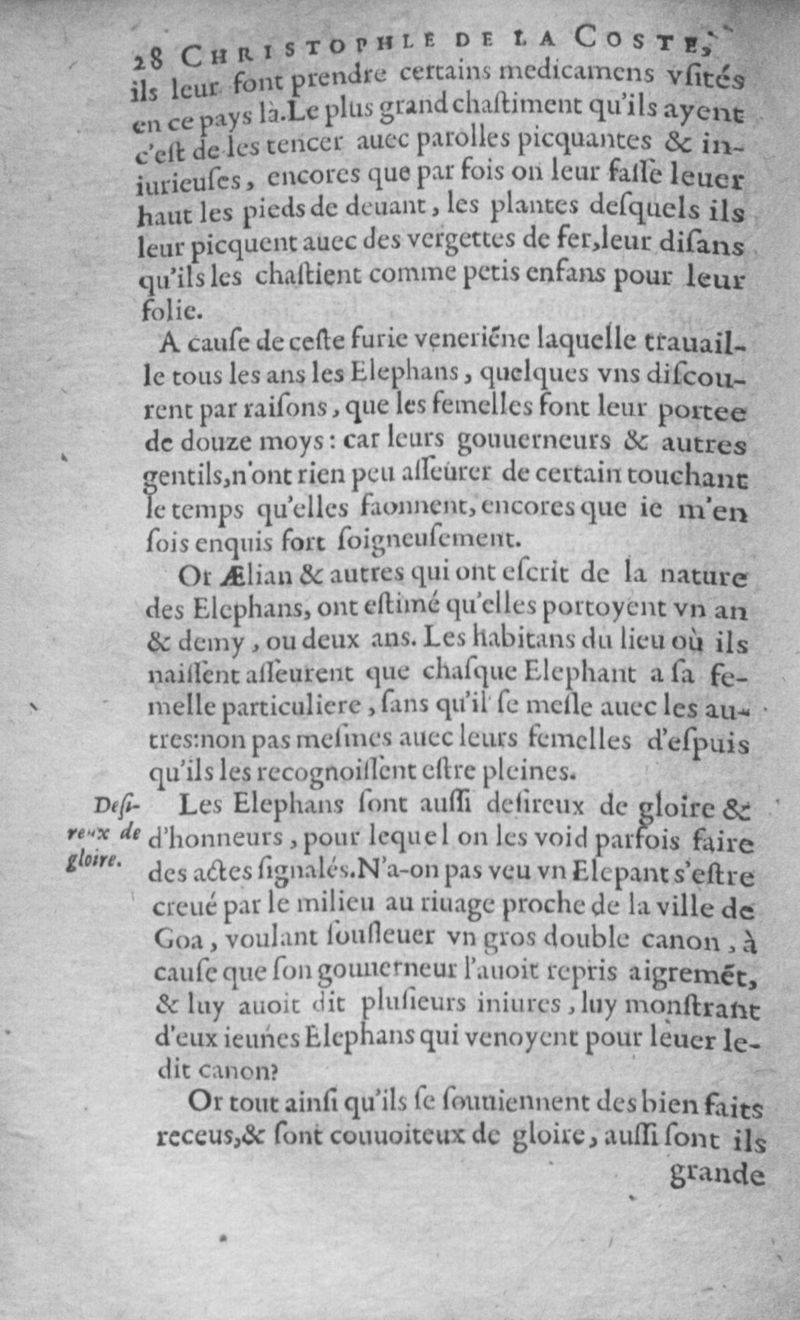 28 CHRISTOPHLE DE LA COSTE,
ils leur font prendre certains medicamens vſités
en ce pays là. Le plus grand chaſtiment qu'ils ayent
c'eſt de les tencer auec parolles picquantes & in-
iurieuſes, encores que par fois on leur faſſe leuer
haut les pieds de deuant, les plantes deſquels ils
leur picquent auec des vergettes de fer, leur diſans
qu'ils les chaſtient comme petis enfans pour leur
folie.
A cauſe de ceſte furie veneriẽne laquelle trauail-
le tous les ans les Elephans, quelques vns diſcou-
rent par raiſons, que les femelles font leur portee
de douze moys: car leurs gouuerneurs & autres
gentils, n'ont rien peu aſſeurer de certain touchant
le temps qu'elles faonnent, encores que ie m'en
ſois enquis fort ſoigneuſement.
Or Ælian & autres qui ont eſcrit de la nature
des Elephans, ont eſtimé qu'elles portoyent vn an
& demy, ou deux ans. Les habitans du lieu où ils
naiſſent aſſeurent que chaſque Elephant a ſa fe-
melle particuliere, ſans qu'il ſe meſle auec les au-
tres: non pas meſmes auec leurs femelles d'eſpuis
qu'ils les recognoiſſent eſtre pleines.
Deſi-
reux de
gloire.
Les Elephans ſont auſſi deſireux de gloire &
d'honneurs, pour lequel on les void parfois faire
des actes ſignalés. N'a-on pas veu vn Elepant s'eſtre
creué par le milieu au riuage proche de la ville de
Goa, voulant ſouſleuer vn gros double canon, à
cauſe que ſon gouuerneur l'auoit repris aigremẽt,
& luy auoit dit pluſieurs iniures, luy monſtrant
d'eux ieunes Elephans qui venoyent pour leuer le-
dit canon?
Or tout ainſi qu'ils ſe ſouuiennent des bien faits
receus, & ſont couuoiteux de gloire, auſſi ſont ils
grande